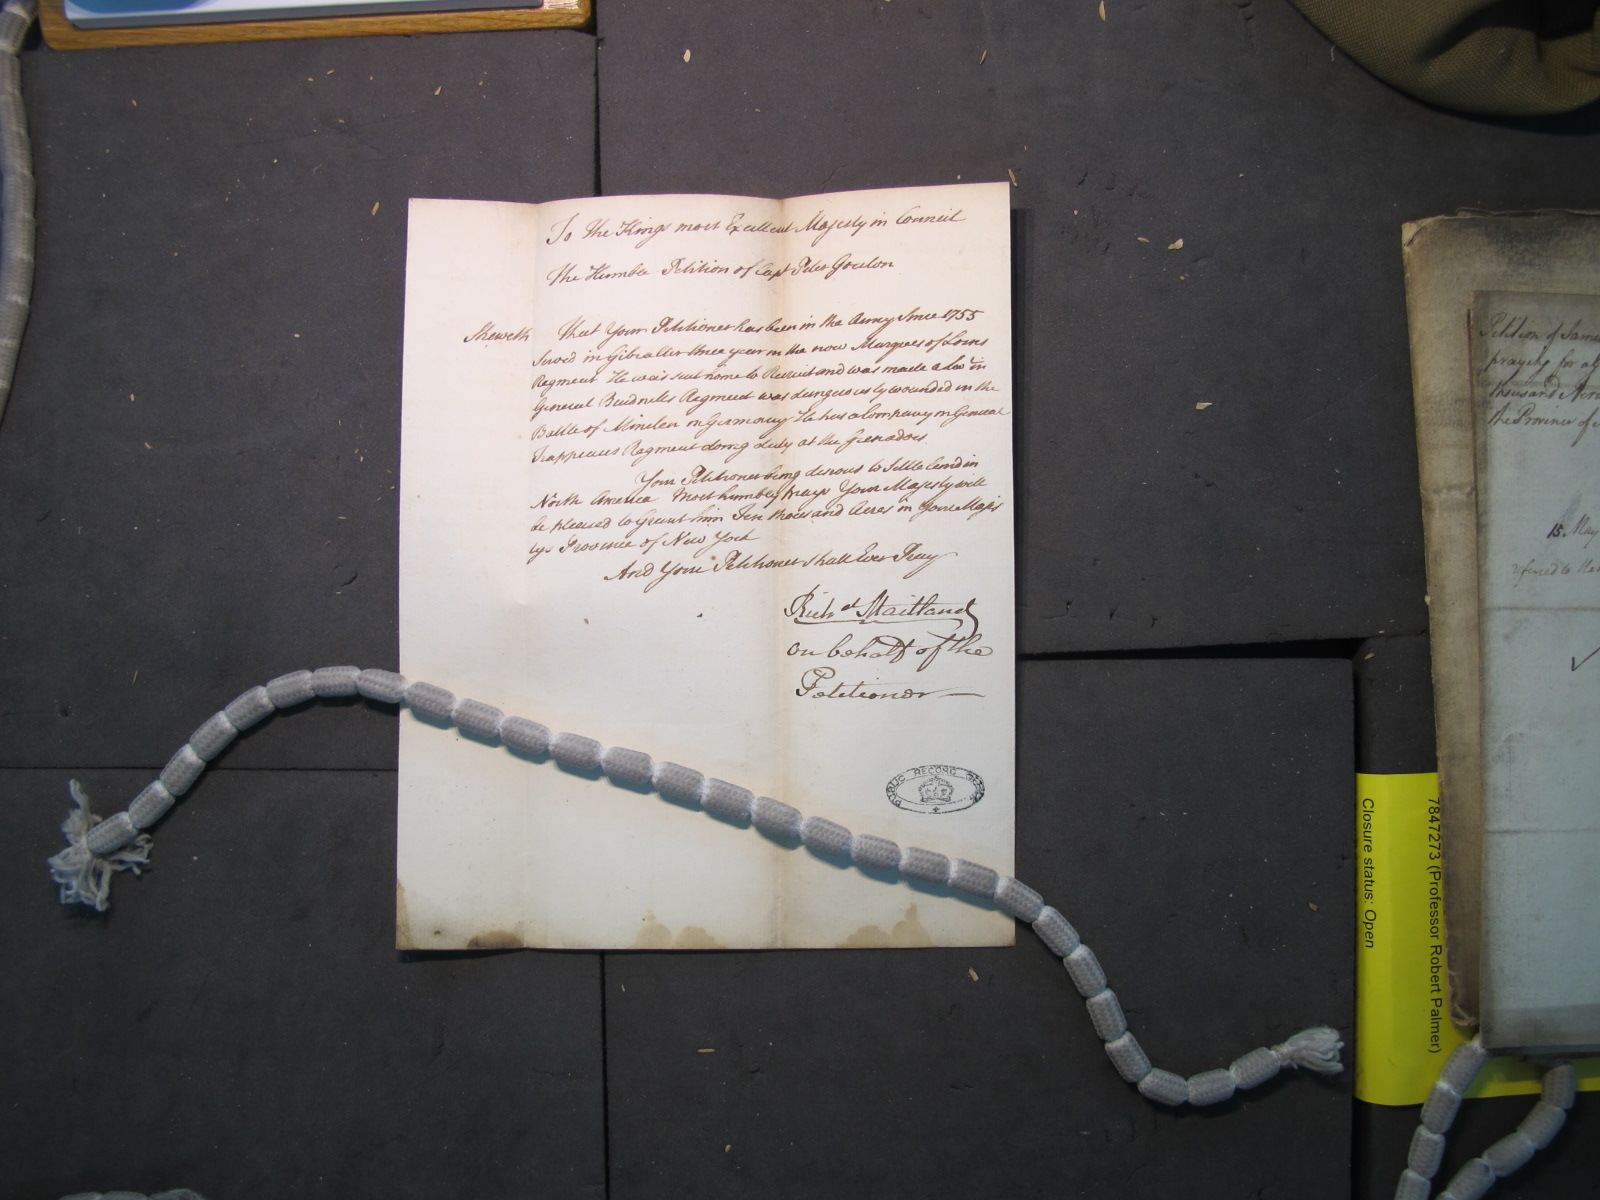 To the Kings most Excellent Majesty in Council
The Humble Petition of Capt Peter Gordon
Sheweth That Your Petitioner has been in the Army Since 1755
Served in Gibralter three years in the now Marquess of Lorns
Regiment He was sent home to Recruit and was made a Lieut in
General Brudnells Regiment was dangerously wounded in the
Battle of Minden in Germany He has a Company in General
Regiment doing duty at the Grenados.
Your Petitioner being desirous to Settle Land in
North America Most humbly prays Your Majesty will
be pleased to Grant him Ten thousand Acres in Your Majes
tys Province of New York
And Your Petitioner shall Ever Pray
Richd Maitland
on behalf of the
Petitioner
PUBLIC RECORD OFFICE
Petition of Samu
prays for a G
thousand Acre
the Province of
15. May
referred to the
7847273 (Professor Robert Palmer)
Closure status: Open